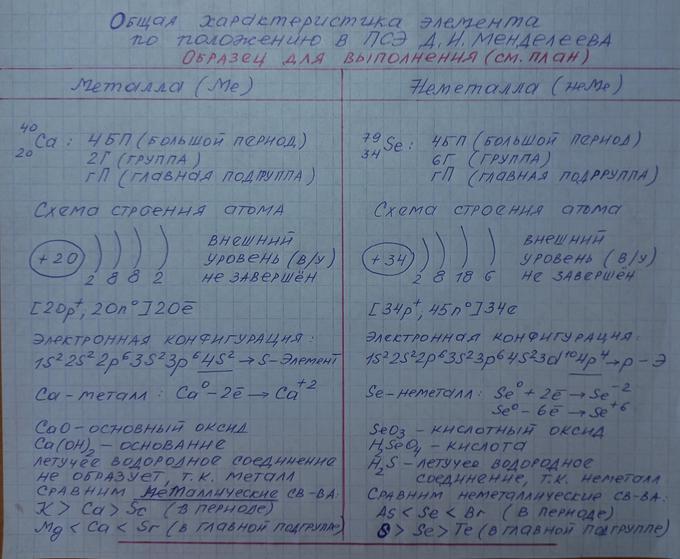 Общая характеристика элемента
по положению в ПСЭ Д.И. Менделеева
Образец для выполнения (см. план)
Металла (Me)
⁴⁰₂₀Ca: 4БП (большой период)
2Г (группа)
гП (главная подгруппа)
Схема строения атома
+20 ) ) ) ) внешний
уровень (в/у)
2 8 8 2 не завершён
[20p⁺, 20n⁰] 20ē
Электронная конфигурация:
1s²2s²2p⁶3s²3p⁶4s² → s-элемент
Ca-металл: Ca⁰ – 2ē → Ca⁺²
CaO – основный оксид
Ca(OH)₂ – основание
летучее водородное соединение
не образует, т.к. металл
Сравним металлические св-ва:
K > Ca > Sc (в периоде)
Mg < Ca < Sr (в главной подгруппе)
Неметалла (неMe)
⁷⁹₃₄Se: 4БП (большой период)
6Г (группа)
гП (главная подгруппа)
Схема строения атома
+34 ) ) ) ) внешний
уровень (в/у)
2 8 18 6 не завершён
[34p⁺, 45n⁰] 34e
Электронная конфигурация:
1s²2s²2p⁶3s²3p⁶4s²3d¹⁰4p⁴ → p – э
Se-неметалл: Se⁰ + 2ē → Se⁻²
Se⁰ – 6ē → Se⁺⁶
SeO₃ – кислотный оксид
H₂SeO₄ – кислота
H₂S – летучее водородное
соединение, т.к. неметалл
Сравним неметаллические св-ва:
As < Se < Br (в периоде)
S > Se > Te (в главной подгруппе)